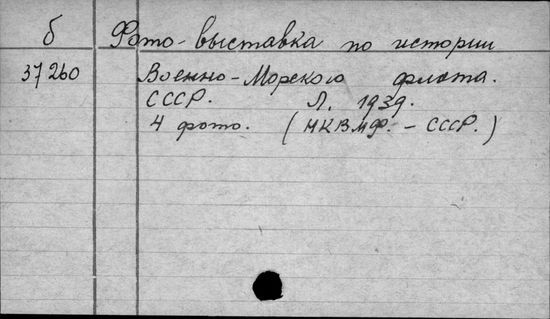 б Фото-выставка по истории
37260 Военно-Морского флота.
СССР. Л. 1939.
4 фото. (НКВМФ. - СССР.)